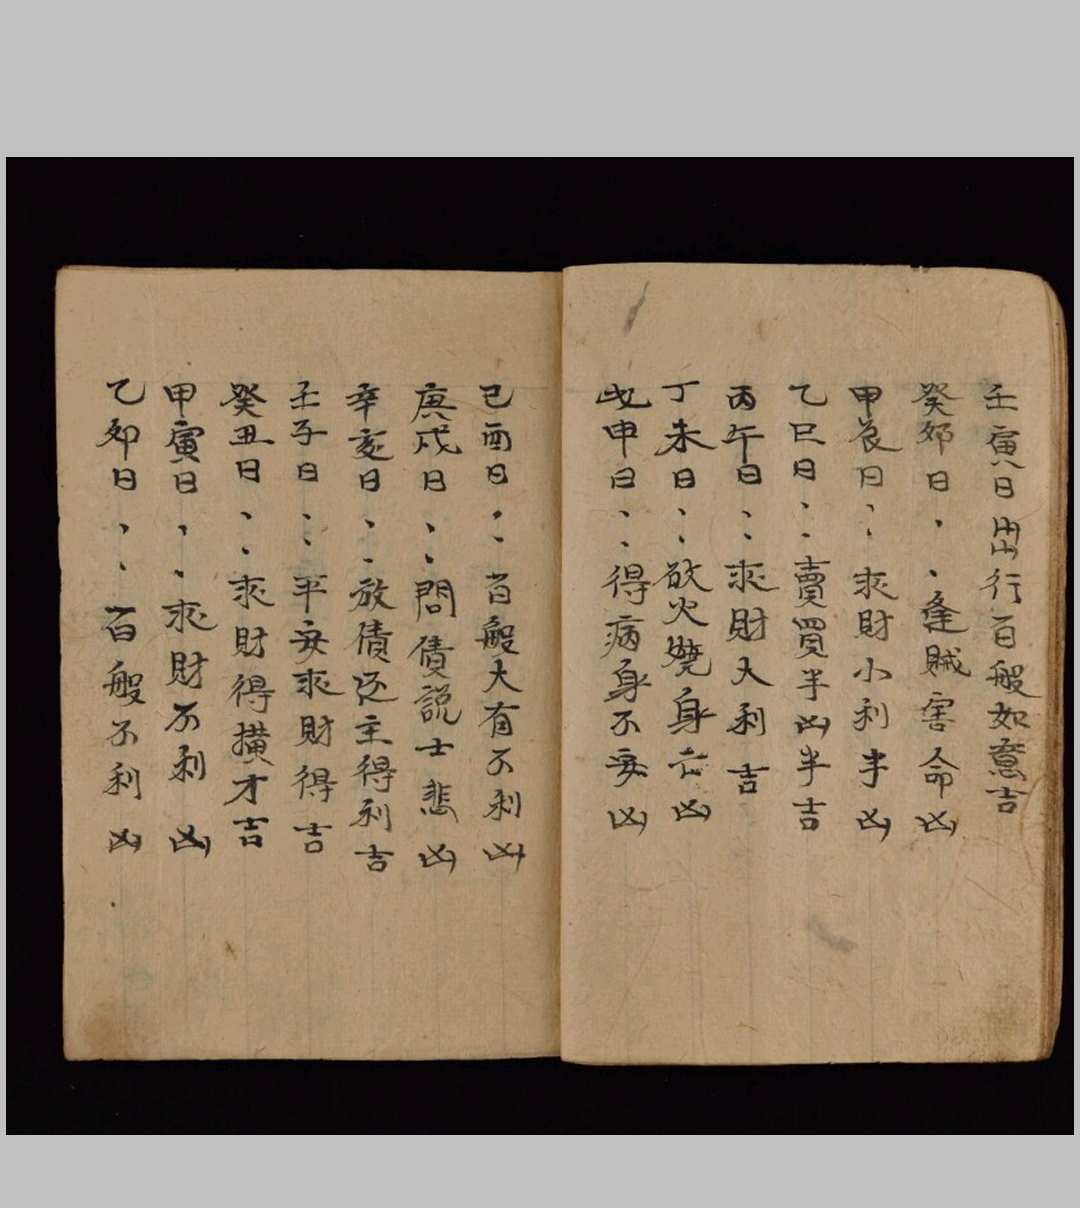 壬寅日出行百般如意吉
癸卯日、、逢賊害命凶
甲辰日、、求財小利半凶
乙巳日、、賣買半凶半吉
丙午日、、求財大利吉
丁未日、、欲火燒身亡凶
戊申日、、得病身不安凶
己酉日、、百般大有不利凶
庚戌日、、問債説士悲凶
辛亥日、、放債还主得利吉
壬子日、、平安求財得吉
癸丑日、、求財得横才吉
甲寅日、、求財不利凶
乙卯日、、百般不利凶